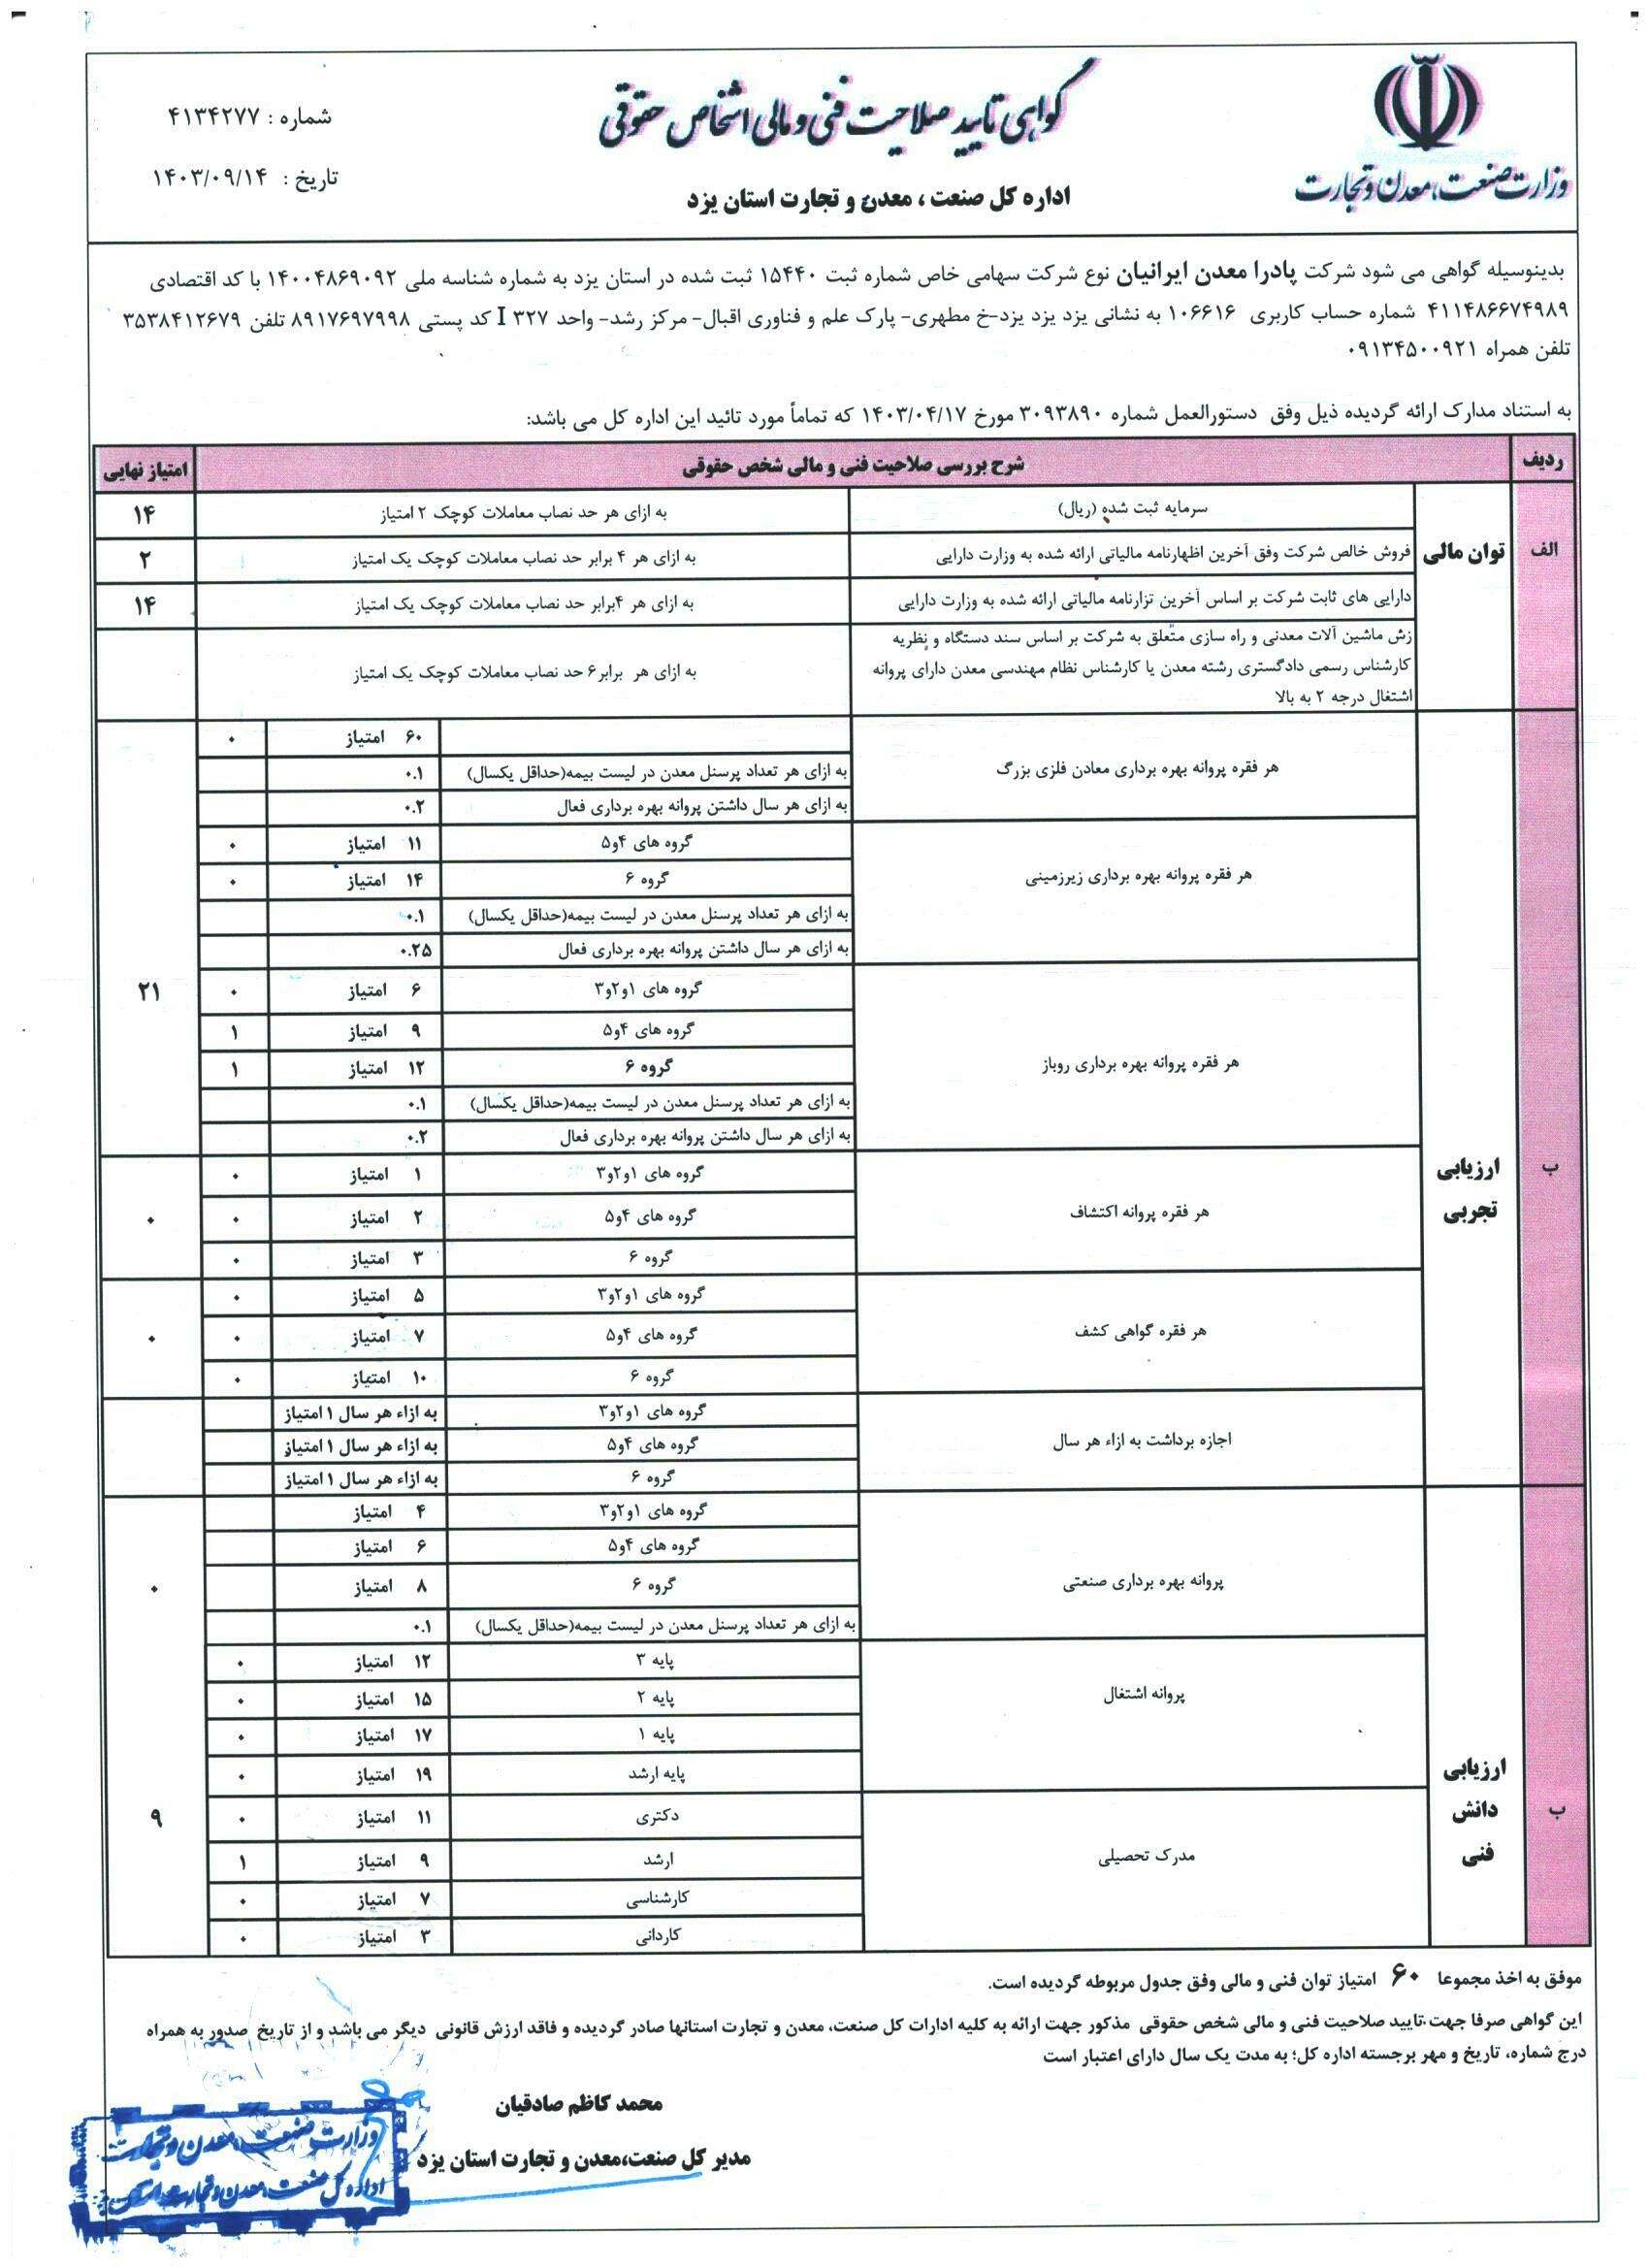 وزارت صنعت، معدن و تجارت
گواهی تایید صلاحیت فنی و مالی اشخاص حقوقی
اداره کل صنعت ، معدن و تجارت استان یزد
شماره : ۴۱۳۴۲۷۷
تاریخ : ۱۴۰۳/۰۹/۱۴
بدینوسیله گواهی می شود شرکت پادرا معدن ایرانیان نوع شرکت سهامی خاص شماره ثبت ۱۵۴۴۰ ثبت شده در استان یزد به شماره شناسه ملی ۱۴۰۰۴۸۶۹۰۹۲ با کد اقتصادی
۴۱۱۴۸۶۶۷۴۹۸۹ شماره حساب کاربری ۱۰۶۶۱۶ به نشانی یزد یزد یزد-خ مطهری- پارک علم و فناوری اقبال- مرکز رشد- واحد I ۳۲۷ کد پستی ۸۹۱۷۶۹۷۹۹۸ تلفن ۳۵۳۸۴۱۲۶۷۹
تلفن همراه ۰۹۱۳۴۵۰۰۹۲۱
به استناد مدارک ارائه گردیده ذیل وفق دستورالعمل شماره ۳۰۹۳۸۹۰ مورخ ۱۴۰۳/۰۴/۱۷ که تماماً مورد تائید این اداره کل می باشد:
ردیف شرح بررسی صلاحیت فنی و مالی شخص حقوقی امتیاز نهایی
الف توان مالی
سرمایه ثبت شده (ریال) به ازای هر حد نصاب معاملات کوچک ۲ امتیاز ۱۴
فروش خالص شرکت وفق آخرین اظهارنامه مالیاتی ارائه شده به وزارت دارایی به ازای هر ۴ برابر حد نصاب معاملات کوچک یک امتیاز ۲
دارایی های ثابت شرکت بر اساس آخرین تزارنامه مالیاتی ارائه شده به وزارت دارایی به ازای هر ۴برابر حد نصاب معاملات کوچک یک امتیاز ۱۴
زش ماشین آلات معدنی و راه سازی متعلق به شرکت بر اساس سند دستگاه و نظریه
کارشناس رسمی دادگستری رشته معدن یا کارشناس نظام مهندسی معدن دارای پروانه به ازای هر برابر۶ حد نصاب معاملات کوچک یک امتیاز
اشتغال درجه ۲ به بالا
ب ارزیابی تجربی
هر فقره پروانه بهره برداری معادن فلزی بزرگ
۶۰ امتیاز ۰
به ازای هر تعداد پرسنل معدن در لیست بیمه(حداقل یکسال) ۰.۱
به ازای هر سال داشتن پروانه بهره برداری فعال ۰.۲
هر فقره پروانه بهره برداری زیرزمینی
گروه های ۴و۵ ۱۱ امتیاز ۰
گروه ۶ ۱۴ امتیاز ۰
به ازای هر تعداد پرسنل معدن در لیست بیمه(حداقل یکسال) ۰.۱
به ازای هر سال داشتن پروانه بهره برداری فعال ۰.۲۵
هر فقره پروانه بهره برداری روباز
گروه های ۱و۲و۳ ۶ امتیاز ۰ ۲۱
گروه های ۴و۵ ۹ امتیاز ۱
گروه ۶ ۱۲ امتیاز ۱
به ازای هر تعداد پرسنل معدن در لیست بیمه(حداقل یکسال) ۰.۱
به ازای هر سال داشتن پروانه بهره برداری فعال ۰.۲
هر فقره پروانه اکتشاف
گروه های ۱و۲و۳ ۱ امتیاز ۰
گروه های ۴و۵ ۲ امتیاز ۰ ۰
گروه ۶ ۳ امتیاز ۰
هر فقره گواهی کشف
گروه های ۱و۲و۳ ۵ امتیاز ۰
گروه های ۴و۵ ۷ امتیاز ۰ ۰
گروه ۶ ۱۰ امتیاز ۰
اجازه برداشت به ازاء هر سال
گروه های ۱و۲و۳ به ازاء هر سال ۱ امتیاز
گروه های ۴و۵ به ازاء هر سال ۱ امتیاز
گروه ۶ به ازاء هر سال ۱ امتیاز
ب ارزیابی دانش فنی
پروانه بهره برداری صنعتی
گروه های ۱و۲و۳ ۴ امتیاز
گروه های ۴و۵ ۶ امتیاز
گروه ۶ ۸ امتیاز ۰
به ازای هر تعداد پرسنل معدن در لیست بیمه(حداقل یکسال) ۰.۱
پروانه اشتغال
پایه ۳ ۱۲ امتیاز ۰
پایه ۲ ۱۵ امتیاز ۰
پایه ۱ ۱۷ امتیاز ۰
پایه ارشد ۱۹ امتیاز ۰
مدرک تحصیلی
دکتری ۱۱ امتیاز ۰ ۹
ارشد ۹ امتیاز ۱
کارشناسی ۷ امتیاز ۰
کاردانی ۳ امتیاز ۰
موفق به اخذ مجموعا ۶۰ امتیاز توان فنی و مالی وفق جدول مربوطه گردیده است.
این گواهی صرفا جهت تایید صلاحیت فنی و مالی شخص حقوقی مذکور جهت ارائه به کلیه ادارات کل صنعت، معدن و تجارت استانها صادر گردیده و فاقد ارزش قانونی دیگر می باشد و از تاریخ صدور به همراه
درج شماره، تاریخ و مهر برجسته اداره کل؛ به مدت یک سال دارای اعتبار است
محمد کاظم صادقیان
مدیر کل صنعت،معدن و تجارت استان یزد
وزارت صنعت، معدن و تجارت
اداره کل صنعت، معدن و تجارت